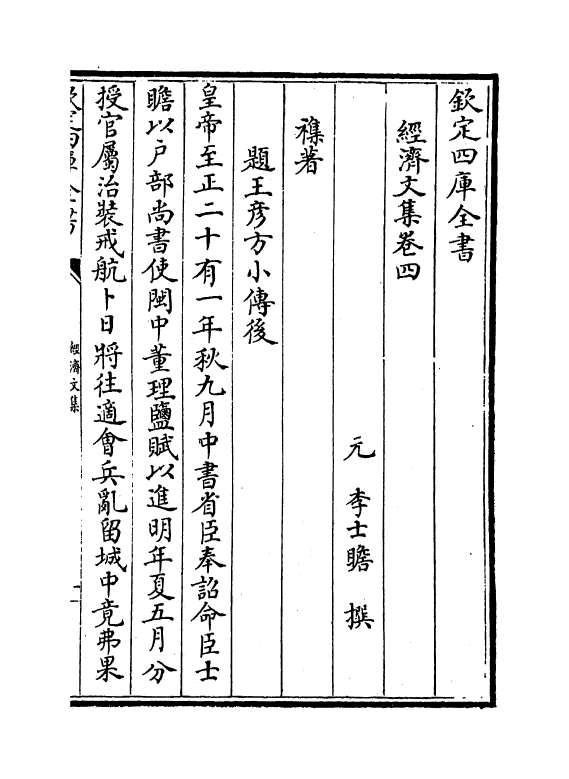 欽定四庫全書
經濟文集卷四
元 李士瞻 撰
襍著
題王彦方小傳後
皇帝至正二十有一年秋九月中書省臣奉詔命臣士
瞻以户部尚書使閩中董理鹽賦以進明年夏五月分
授官屬治裝戒航卜日將往適會兵亂留城中竟弗果
欽定四庫全書
經濟文集
一